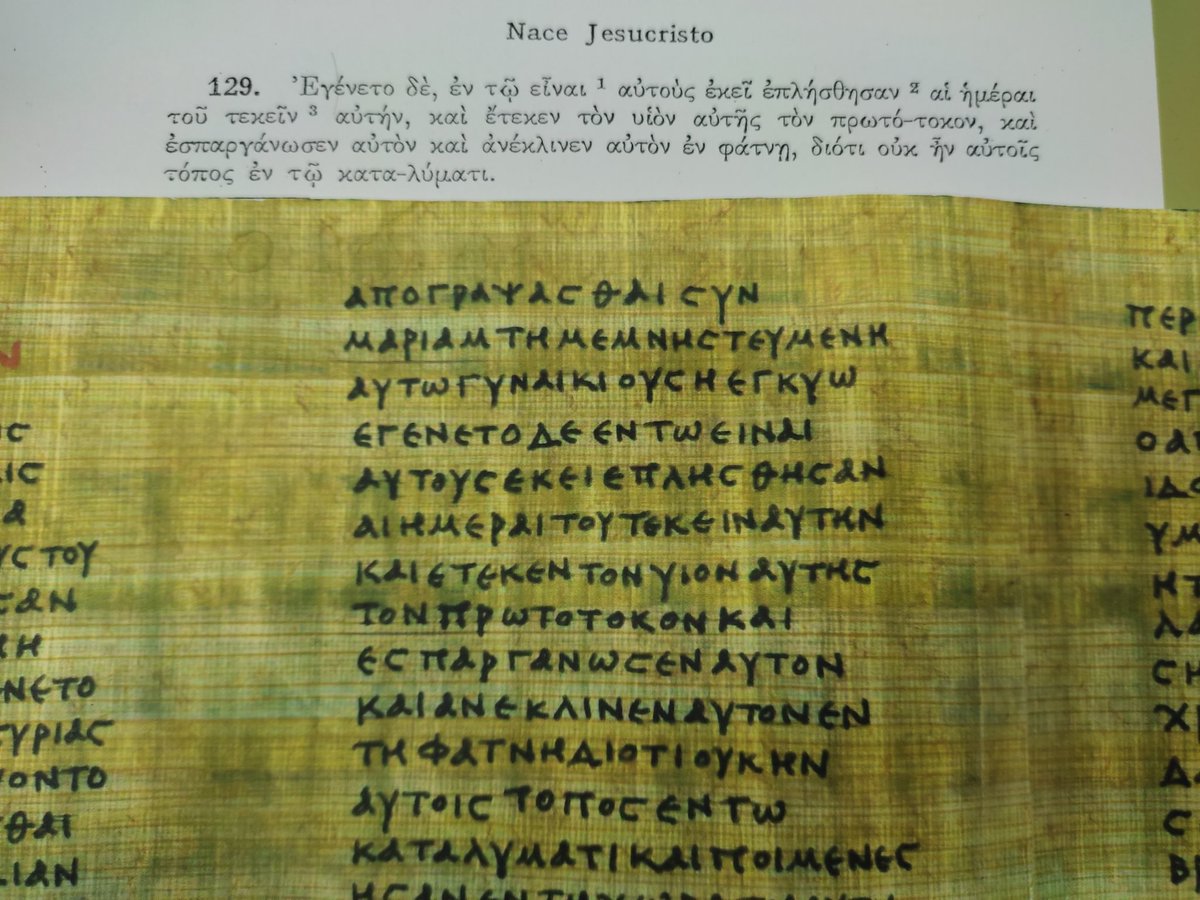 Nace Jesucristo
129. Ἐγένετο δὲ, ἐν τῷ εἶναι ¹ αὐτοὺς ἐκεῖ ἐπλήσθησαν ² αἱ ἡμέραι
τοῦ τεκεῖν ³ αὐτήν, καὶ ἔτεκεν τὸν υἱὸν αὐτῆς τὸν πρωτό-τοκον, καὶ
ἐσπαργάνωσεν αὐτὸν καὶ ἀνέκλινεν αὐτὸν ἐν φάτνῃ, διότι οὐκ ἦν αὐτοῖς
τόπος ἐν τῷ κατα-λύματι.
Ν
ΥϹ ΤΟΥ
ΝΕΤΟ
ΥΡΙΑϹ
ΟΝΤΟ
ΘΑΙ
ΙΑΝ
ΑΠΟΓΡΑΨΑϹΘΑΙ ϹΥΝ
ΜΑΡΙΑΜ ΤΗ ΜΕΜΝΗϹΤΕΥΜΕΝΗ
ΑΥΤΩ ΓΥΝΑΙΚΙ ΟΥϹΗ ΕΓΚΥΩ
ΕΓΕΝΕΤΟ ΔΕ ΕΝ ΤΩ ΕΙΝΑΙ
ΑΥΤΟΥϹ ΕΚΕΙ ΕΠΛΗϹΘΗϹΑΝ
ΑΙ ΗΜΕΡΑΙ ΤΟΥ ΤΕΚΕΙΝ ΑΥΤΗΝ
ΚΑΙ ΕΤΕΚΕΝ ΤΟΝ ΥΙΟΝ ΑΥΤΗϹ
ΤΟΝ ΠΡΩΤΟΤΟΚΟΝ ΚΑΙ
ΕϹΠΑΡΓΑΝΩϹΕΝ ΑΥΤΟΝ
ΚΑΙ ΑΝΕΚΛΙΝΕΝ ΑΥΤΟΝ ΕΝ
ΤΗ ΦΑΤΝΗ ΔΙΟΤΙ ΟΥΚ ΗΝ
ΑΥΤΟΙϹ ΤΟΠΟϹ ΕΝ ΤΩ
ΚΑΤΑΛΥΜΑΤΙ ΚΑΙ ΠΟΙΜΕΝΕϹ
ΠΕΡ
ΚΑΙ
ΜΕΓ
ΥΜ
ϹΗ
Ϲ